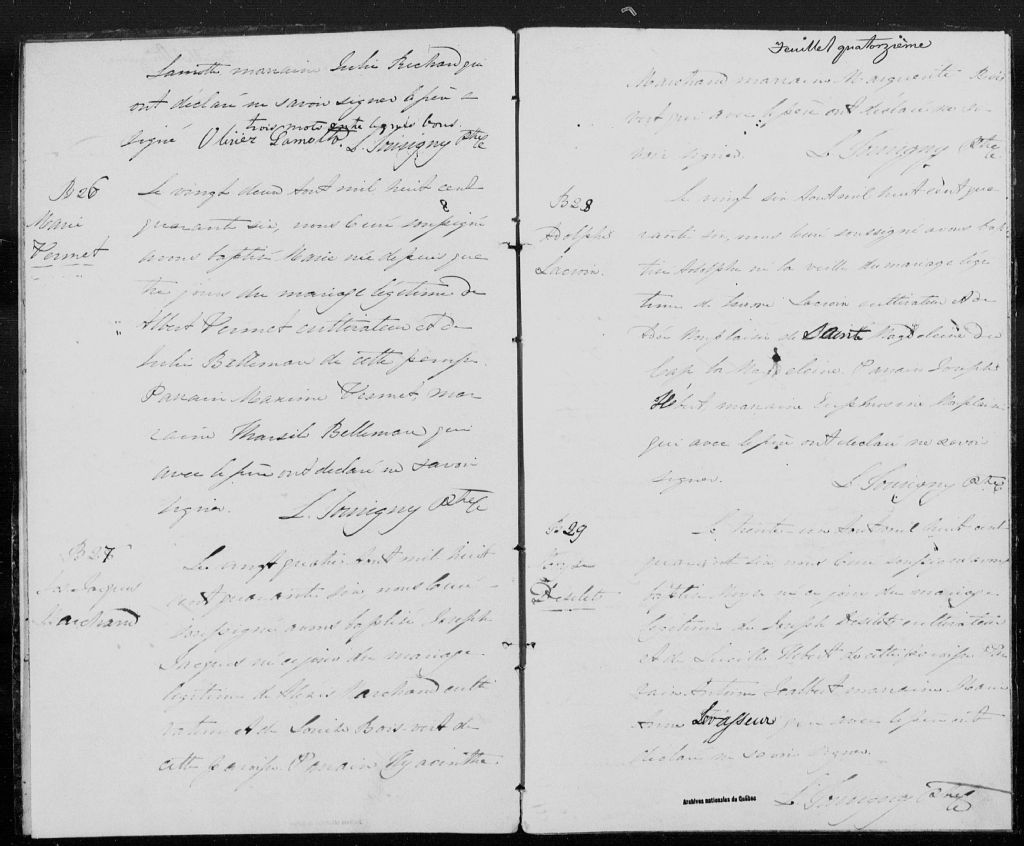 Lamotte marraine Julie Richard qui
ont déclaré ne savoir signer le père a
trois mots entre lignés bons.
signé Olivier Lamotte. L. Souvigny Ptre
B 26
Marie
Vermet
Le vingt deux Aout mil huit cent
quarante six, nous Curé soussigné
avons baptisé Marie née depuis qua
tre jours du mariage légitime de
Albert Vermet cultivateur et de
Julie Bellemar de cette paroisse.
Parrain Maxime Vermet, mar
raine Tharsil Bellemar qui
avec le père ont déclaré ne savoir
signer. L. Souvigny Ptre
B 27
Jacques
Marchand
Le vingt quatre Aout mil huit
cent quarante six, nous Curé
soussigné avons baptisé Joseph
Jacques né ce jour du mariage
légitime de Alexis Marchand culti
vateur et de Louise Bois vert de
cette paroisse. Parrain Hyacinthe
Feuillet quatorzième
Marchand marraine Marguerite Bois
vert qui avec le père ont déclaré ne sa
voir signer. L. Souvigny Ptre
B 28
Adolphe
Lacroix.
Le vingt six Aout mil huit cent qua
rante six, nous Curé soussigné avons bap
tisé Adolphe né la veille du mariage légi
time de Lacroix cultivateur et de
de Sainte Magdeleine du
Cap la Magdeleine. Parrain Joseph
Hébert, marraine Euphrosine
qui avec le père ont déclaré ne savoir
signer. L. Souvigny Ptre
B 29
Desilets
Le trente Aout mil huit cent
quarante six, nous Curé soussigné avons
baptisé né ce jour du mariage
légitime de Joseph Desilets cultivateur
et de Hébert de cette paroisse. Par
rain Antoine marraine Marie
Anne Levasseur qui avec le père ont
déclaré ne savoir signer.
L. Souvigny Ptre
Archives nationales du Québec